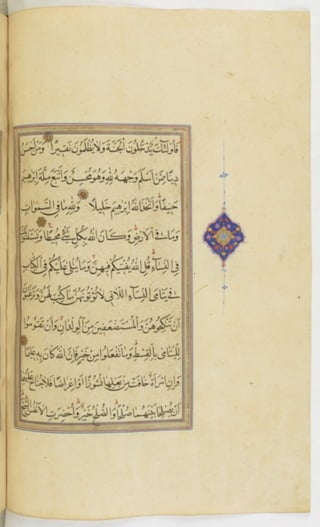 فَأُولَٰئِكَ يَدْخُلُونَ الْجَنَّةَ وَلَا يُظْلَمُونَ نَقِيرًا وَمَنْ أَحْسَنُ
دِينًا مِمَّنْ أَسْلَمَ وَجْهَهُ لِلَّهِ وَهُوَ مُحْسِنٌ وَاتَّبَعَ مِلَّةَ إِبْرَاهِيمَ
حَنِيفًا وَاتَّخَذَ اللَّهُ إِبْرَاهِيمَ خَلِيلًا وَلِلَّهِ مَا فِي السَّمَوَاتِ
وَمَا فِي الْأَرْضِ وَكَانَ اللَّهُ بِكُلِّ شَيْءٍ مُحِيطًا وَيَسْتَفْتُونَكَ
فِي النِّسَاءِ قُلِ اللَّهُ يُفْتِيكُمْ فِيهِنَّ وَمَا يُتْلَى عَلَيْكُمْ فِي الْكِتَابِ
فِي يَتَامَى النِّسَاءِ اللَّاتِي لَا تُؤْتُونَهُنَّ مَا كُتِبَ لَهُنَّ وَتَرْغَبُونَ
أَنْ تَنْكِحُوهُنَّ وَالْمُسْتَضْعَفِينَ مِنَ الْوِلْدَانِ وَأَنْ تَقُومُوا
لِلْيَتَامَى بِالْقِسْطِ وَمَا تَفْعَلُوا مِنْ خَيْرٍ فَإِنَّ اللَّهَ كَانَ بِهِ عَلِيمًا
وَإِنِ امْرَأَةٌ خَافَتْ مِنْ بَعْلِهَا نُشُوزًا أَوْ إِعْرَاضًا فَلَا جُنَاحَ عَلَيْهِمَا
أَنْ يُصْلِحَا بَيْنَهُمَا صُلْحًا وَالصُّلْحُ خَيْرٌ وَأُحْضِرَتِ الْأَنْفُسُ الشُّحَّ